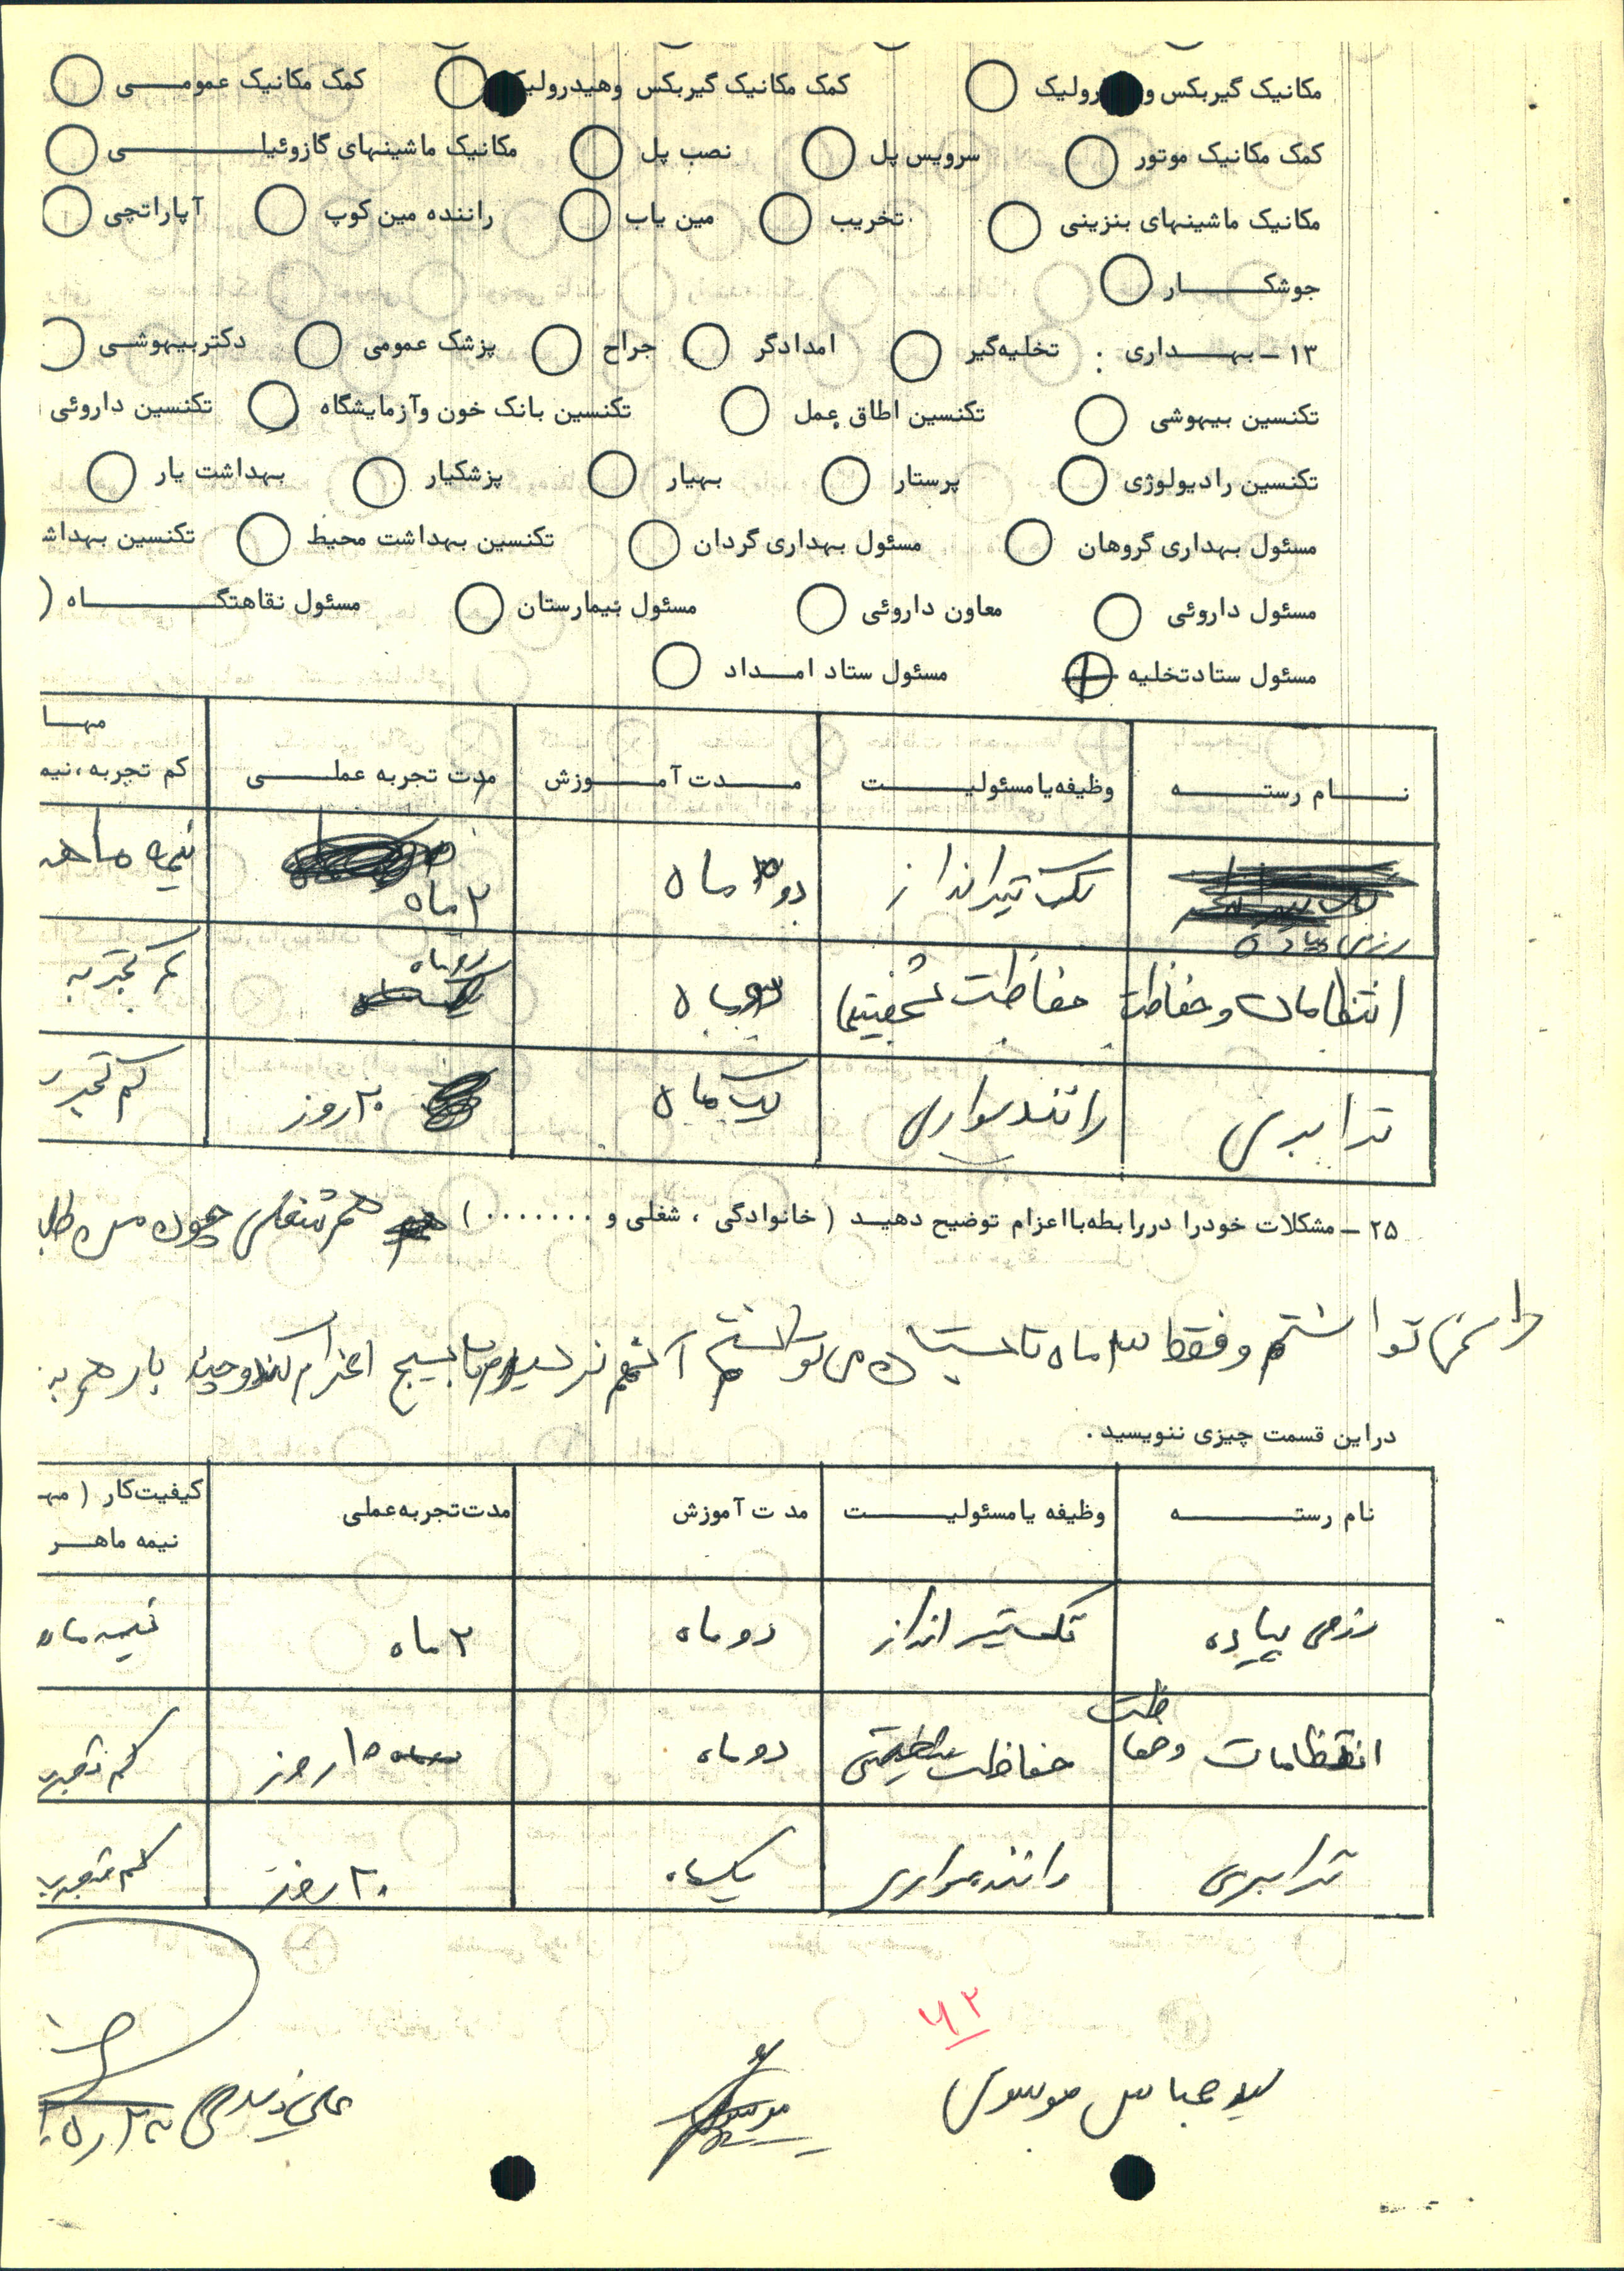 مکانیک گیربکس و رولیک کمک مکانیک گیربکس وهیدرولیک کمک مکانیک عمومی
کمک مکانیک موتور سرویس پل نصب پل مکانیک ماشینهای گازوئیلی
مکانیک ماشینهای بنزینی تخریب مین یاب راننده مین کوپ آپاراتچی
جوشکار
۱۳ - بهداری : تخلیه‌گیر امدادگر جراح پزشک عمومی دکتربیهوشی
تکنسین بیهوشی تکنسین اطاق عمل تکنسین بانک خون وآزمایشگاه تکنسین داروئی
تکنسین رادیولوژی پرستار بهیار پزشکیار بهداشت یار
مسئول بهداری گروهان مسئول بهداری گردان تکنسین بهداشت محیط تکنسین بهداش
مسئول داروئی معاون داروئی مسئول بیمارستان مسئول نقاهتگاه
مسئول ستادتخلیه مسئول ستاد امداد
نام رسته وظیفه‌یامسئولیت مدت آموزش مدت تجربه عملی مها
کم تجربه،نیم
رزمی پیاده تک تیرانداز دو ماه ۲ماه نیمه ماهر
انتظامات و حفاظت حفاظت دو ماه کم تجربه
ترابری راننده سواری یک ماه ۲۰ روز کم تجربه
۲۵ - مشکلات خودرا دررابطه‌بااعزام توضیح دهید ( خانوادگی ، شغلی و ....... ) هم شغلی چون من
و فقط ۳ ماه بسیج اعزام چند بار هم به
دراین قسمت چیزی ننویسید .
نام رسته وظیفه یامسئولیت مدت آموزش مدت‌تجربه‌عملی کیفیت‌کار ( مه
نیمه ماهر
رزمی پیاده تک تیرانداز دو ماه ۲ ماه نیمه ماه
انتظامات وحفاظت حفاظت دو ماه ۱۵ روز کم تجربه
ترابری راننده سواری یک ماه ۲۰ روز کم تجربه
سید عباس موسوی